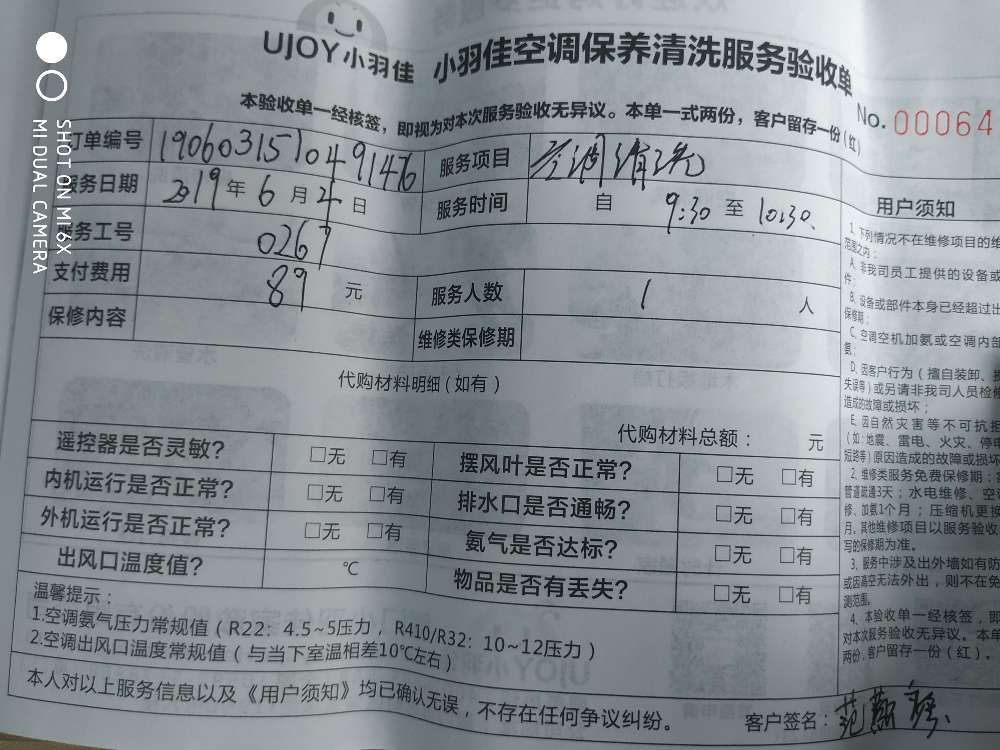 UJOY小羽佳 小羽佳空调保养清洗服务验收单
本验收单一经核签，即视为对本次服务验收无异议。本单一式两份，客户留存一份(红)
No. 00064
订单编号 1906031570491476 服务项目 空调清洗
服务日期 2019年6月4日 服务时间 自 9:30 至 10:30
服务工号 0267
支付费用 89 元 服务人数 1 人
保修内容 维修类保修期
代购材料明细(如有)
代购材料总额： 元
遥控器是否灵敏? □无 □有 摆风叶是否正常? □无 □有
内机运行是否正常? □无 □有 排水口是否通畅? □无 □有
外机运行是否正常? □无 □有 氨气是否达标? □无 □有
出风口温度值? ℃ 物品是否有丢失? □无 □有
温馨提示：
1.空调氨气压力常规值(R22：4.5~5压力，R410/R32：10~12压力)
2.空调出风口温度常规值(与当下室温相差10℃左右)
本人对以上服务信息以及《用户须知》均已确认无误，不存在任何争议纠纷。
客户签名：范
用户须知
1、下列情况不在维修项目的维
范围之内：
A、非我司员工提供的设备或
件；
B、设备或部件本身已经超过出
保修期；
C、空调空机加氨或空调内部
氨；
D、因客户行为(擅自装卸、损
失误等)或另请非我司人员检修
造成的故障或损坏；
E、因自然灾害等不可抗拒
(如:地震、雷电、火灾、停电
短路等)原因造成的故障或损坏
2、维修类服务免费保修期：
管道疏通3天；水电维修、空
修、加氨1个月；压缩机更换
月，其他维修项目以服务验收
写的保修期为准。
3、服务中涉及出外墙如有防
或因高空无法外出，则不在免
测范围。
4、本验收单一经核签，即
对本次服务验收无异议。本单
两份，客户留存一份(红)。
SHOT ON MI6X
MI DUAL CAMERA